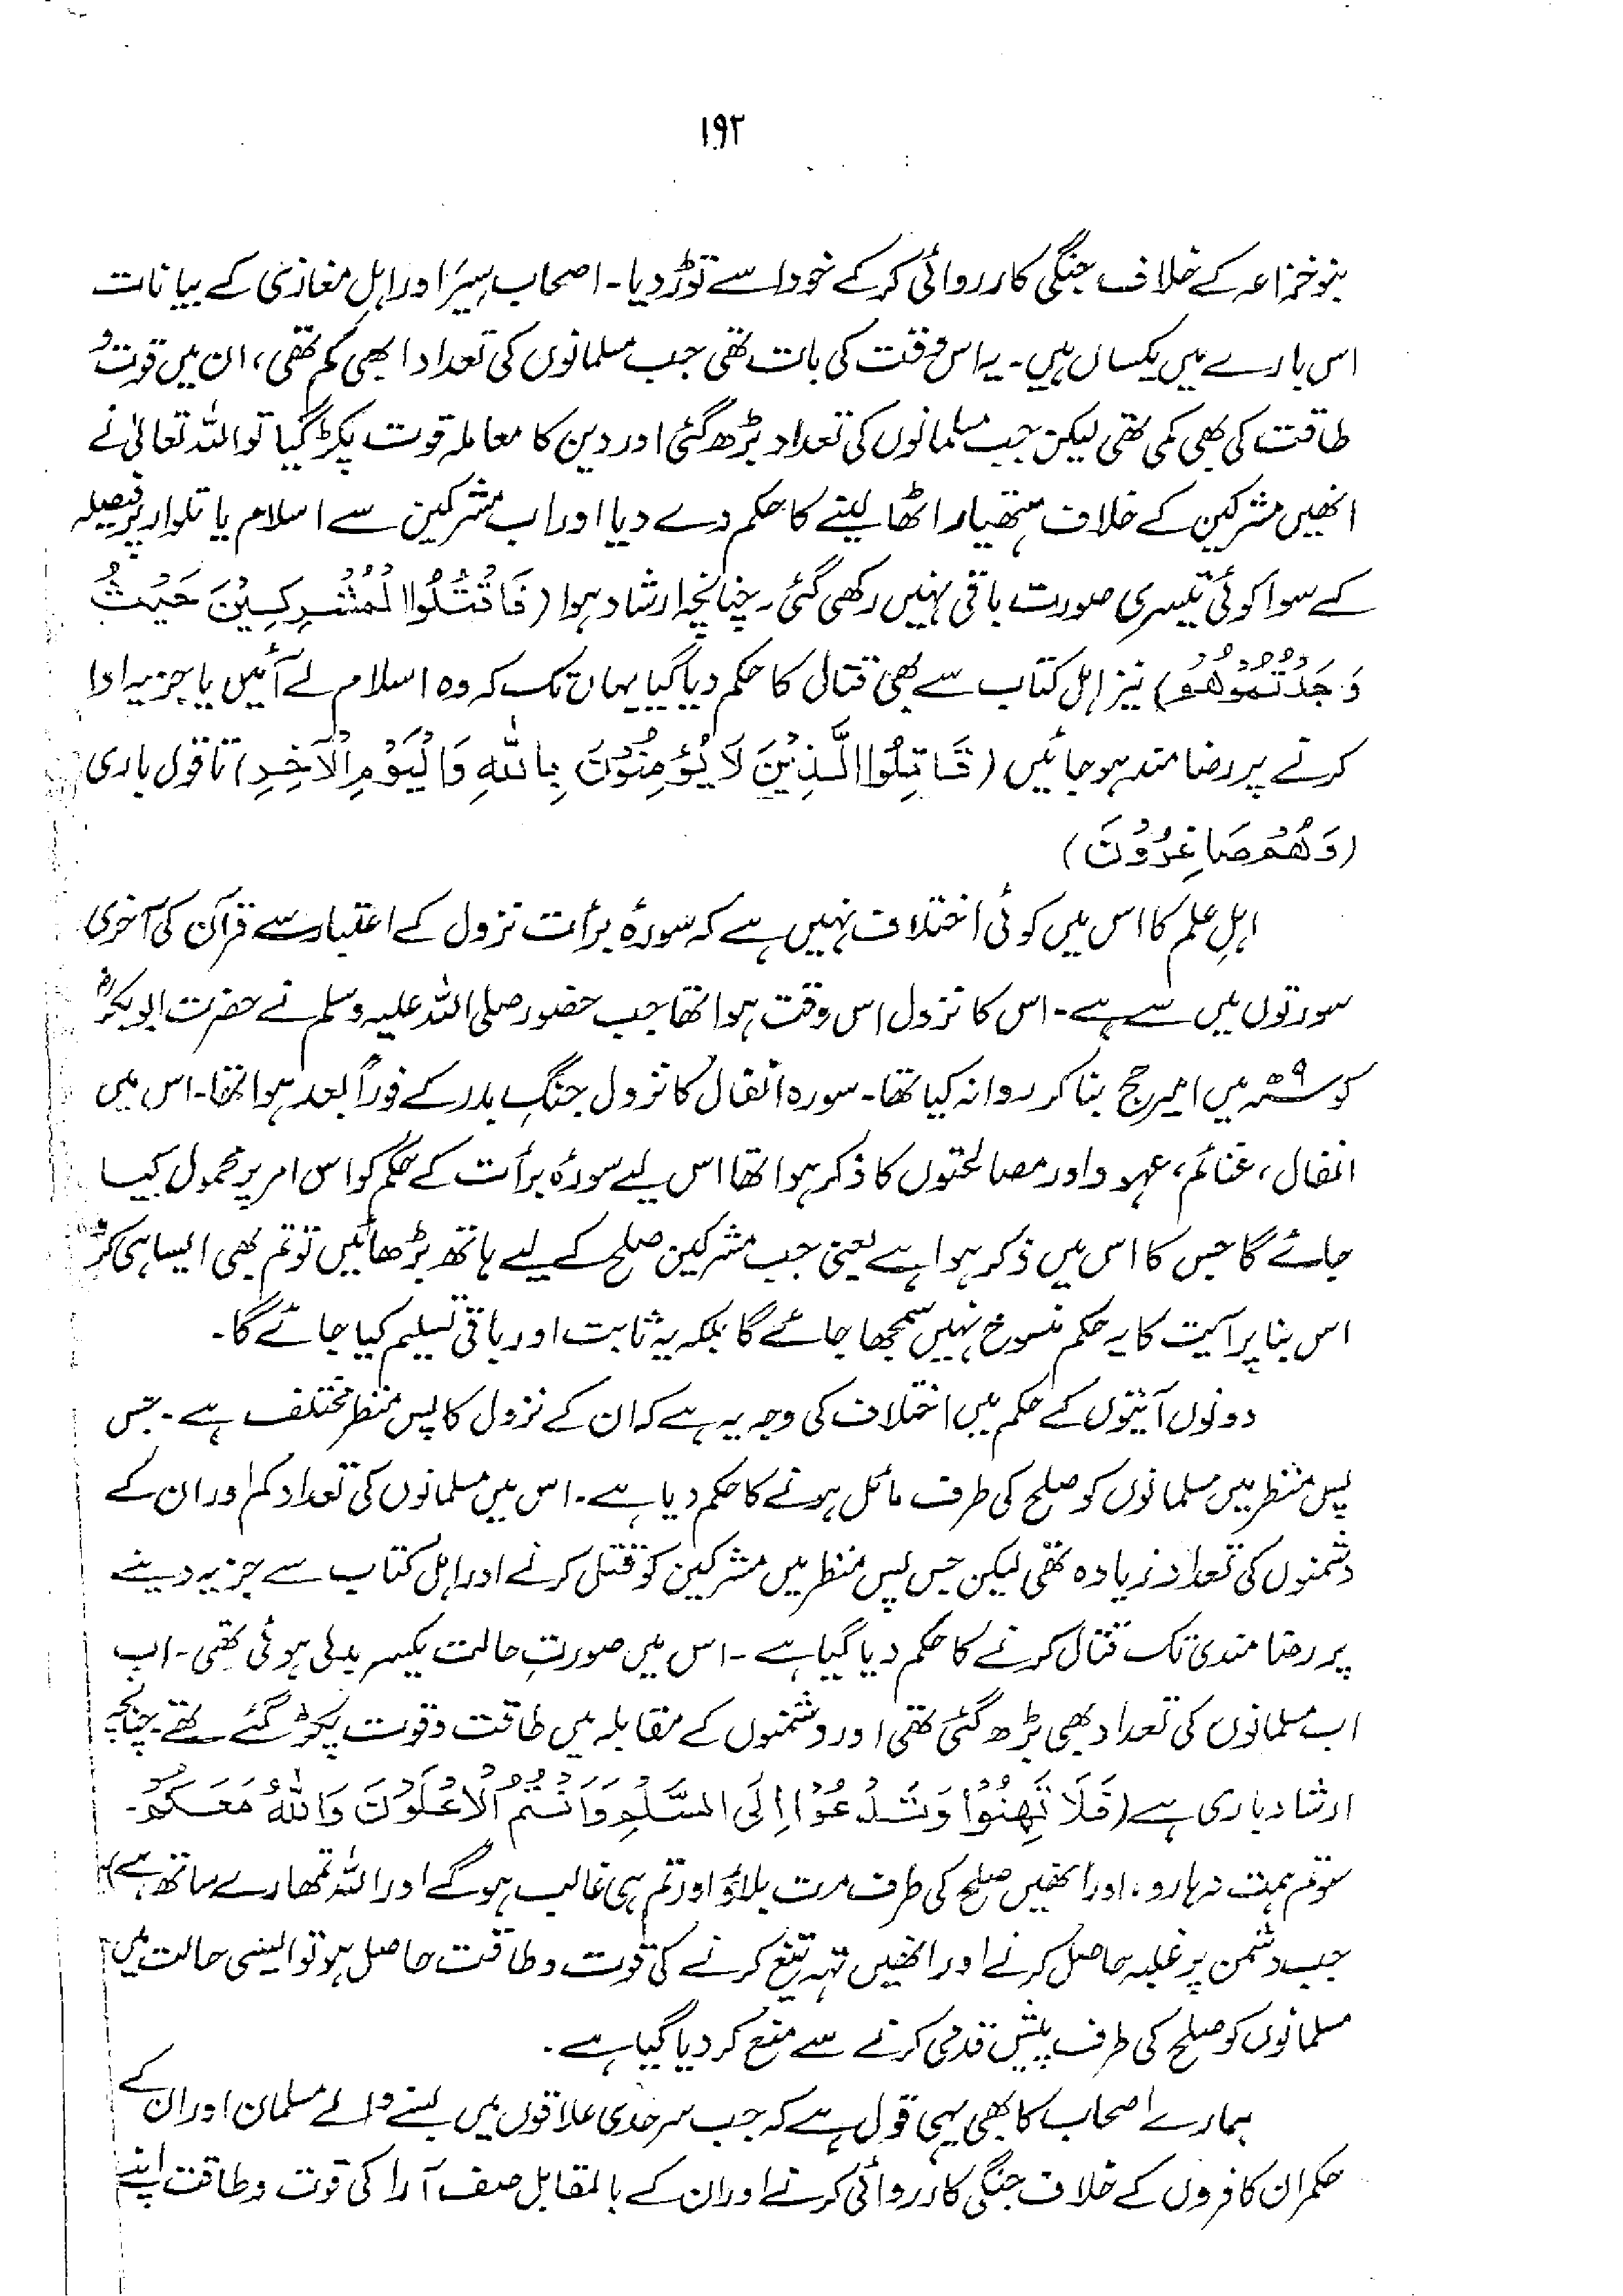 ۱۹۲
بنو خزاعہ کے خلاف جنگی کارروائی کر کے خود اسے توڑ دیا۔ اصحاب سِیَر اور اہلِ مغازی کے بیانات
اس بارے میں یکساں ہیں۔ یہ اس وقت کی بات تھی جب مسلمانوں کی تعداد ابھی کم تھی، ان میں قوت و
طاقت کی بھی کمی تھی لیکن جب مسلمانوں کی تعداد بڑھ گئی اور دین کا معاملہ قوت پکڑ گیا تو اللہ تعالیٰ نے
انھیں مشرکین کے خلاف ہتھیار اٹھا لینے کا حکم دے دیا اور اب مشرکین سے اسلام یا تلوار پر فیصلہ
کے سوا کوئی تیسری صورت باقی نہیں رکھی گئی۔ چنانچہ ارشاد ہوا (فَاقْتُلُوا الْمُشْرِكِيْنَ حَيْثُ
وَجَدْتُمُوْهُمْ) نیز اہل کتاب سے بھی قتال کا حکم دیا گیا یہاں تک کہ وہ اسلام لے آئیں یا جزیہ ادا
کرنے پر رضامند ہو جائیں (قَاتِلُوا الَّذِيْنَ لَا يُؤْمِنُوْنَ بِاللّٰهِ وَالْيَوْمِ الْآخِرِ) تا قول باری
(وَهُمْ صَاغِرُوْنَ)
اہلِ علم کا اس میں کوئی اختلاف نہیں ہے کہ سورۂ برأت نزول کے اعتبار سے قرآن کی آخری
سورتوں میں سے ہے۔ اس کا نزول اس وقت ہوا تھا جب حضور صلی اللہ علیہ وسلم نے حضرت ابوبکرؓ
کو ۹ھ میں امیر حج بنا کر روانہ کیا تھا۔ سورہ انفال کا نزول جنگِ بدر کے فوراً بعد ہوا تھا۔ اس میں
انفال، غنائم، عہود اور مصالحتوں کا ذکر ہوا تھا اس لیے سورۂ برأت کے حکم کو اس امر پر محمول کیا
جائے گا جس کا اس میں ذکر ہوا ہے یعنی جب مشرکین صلح کے لیے ہاتھ بڑھائیں تو تم بھی ایسا ہی کرو
اس بنا پر آیت کا یہ حکم منسوخ نہیں سمجھا جائے گا بلکہ یہ ثابت اور باقی تسلیم کیا جائے گا۔
دونوں آیتوں کے حکم میں اختلاف کی وجہ یہ ہے کہ ان کے نزول کا پس منظر مختلف ہے۔ جس
پس منظر میں مسلمانوں کو صلح کی طرف مائل ہونے کا حکم دیا ہے۔ اس میں مسلمانوں کی تعداد کم اور ان کے
دشمنوں کی تعداد زیادہ تھی لیکن جس پس منظر میں مشرکین کو قتل کرنے اور اہل کتاب سے جزیہ دینے
پر رضامندی تک قتال کرنے کا حکم دیا گیا ہے۔ اس میں صورتِ حالت یکسر بدلی ہوئی تھی۔ اب
اب مسلمانوں کی تعداد بھی بڑھ گئی تھی اور دشمنوں کے مقابلہ میں طاقت و قوت پکڑ گئے تھے۔ چنانچہ
ارشاد باری ہے (فَلَا تَهِنُوْا وَتَدْعُوْا اِلَى السَّلْمِ وَاَنْتُمُ الْاَعْلَوْنَ وَاللّٰهُ مَعَكُمْ۔
سو تم ہمت نہ ہارو، اور انھیں صلح کی طرف مت بلاؤ اور تم ہی غالب ہو گے اور اللہ تمھارے ساتھ ہے)
جب دشمن پر غلبہ حاصل کرنے اور انھیں تہہ تیغ کرنے کی قوت و طاقت حاصل ہو تو ایسی حالت میں
مسلمانوں کو صلح کی طرف پیش قدمی کرنے سے منع کر دیا گیا ہے۔
ہمارے اصحاب کا بھی یہی قول ہے کہ جب سرحدی علاقوں میں بسنے والے مسلمان اور ان کے
حکمران کافروں کے خلاف جنگی کارروائی کرنے اور ان کے بالمقابل صف آرا کی قوت و طاقت اپنے